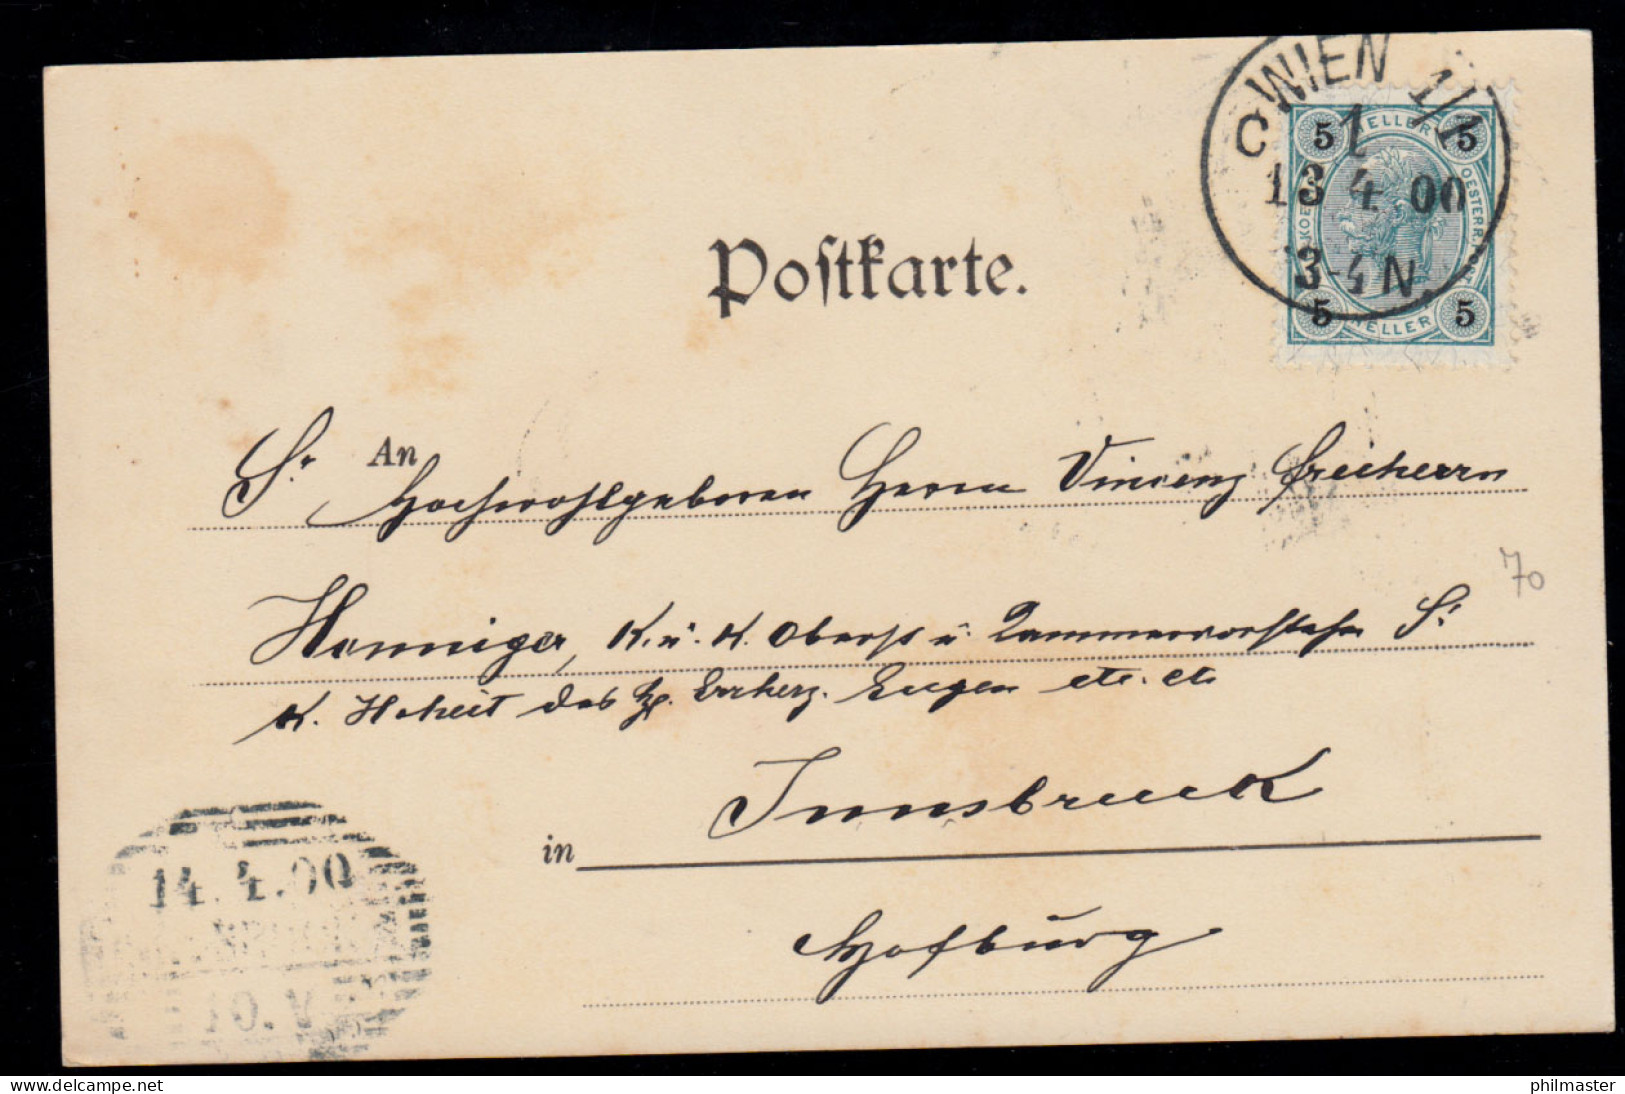 WIEN 1/1
C 1
13 4 00
3-4 N
5 HELLER 5
5 HELLER 5
Postkarte.
An
Sr Hochwohlgeboren Herrn Vincenz Freiherrn
Henniger, K. u. K. Oberst u. Kammervorsteher Sr
K. Hoheit des H. Erzherz. Eugen etc. etc
in Innsbruck
Hofburg
70
14.4.00
10.V
delcampe.net
philmaster